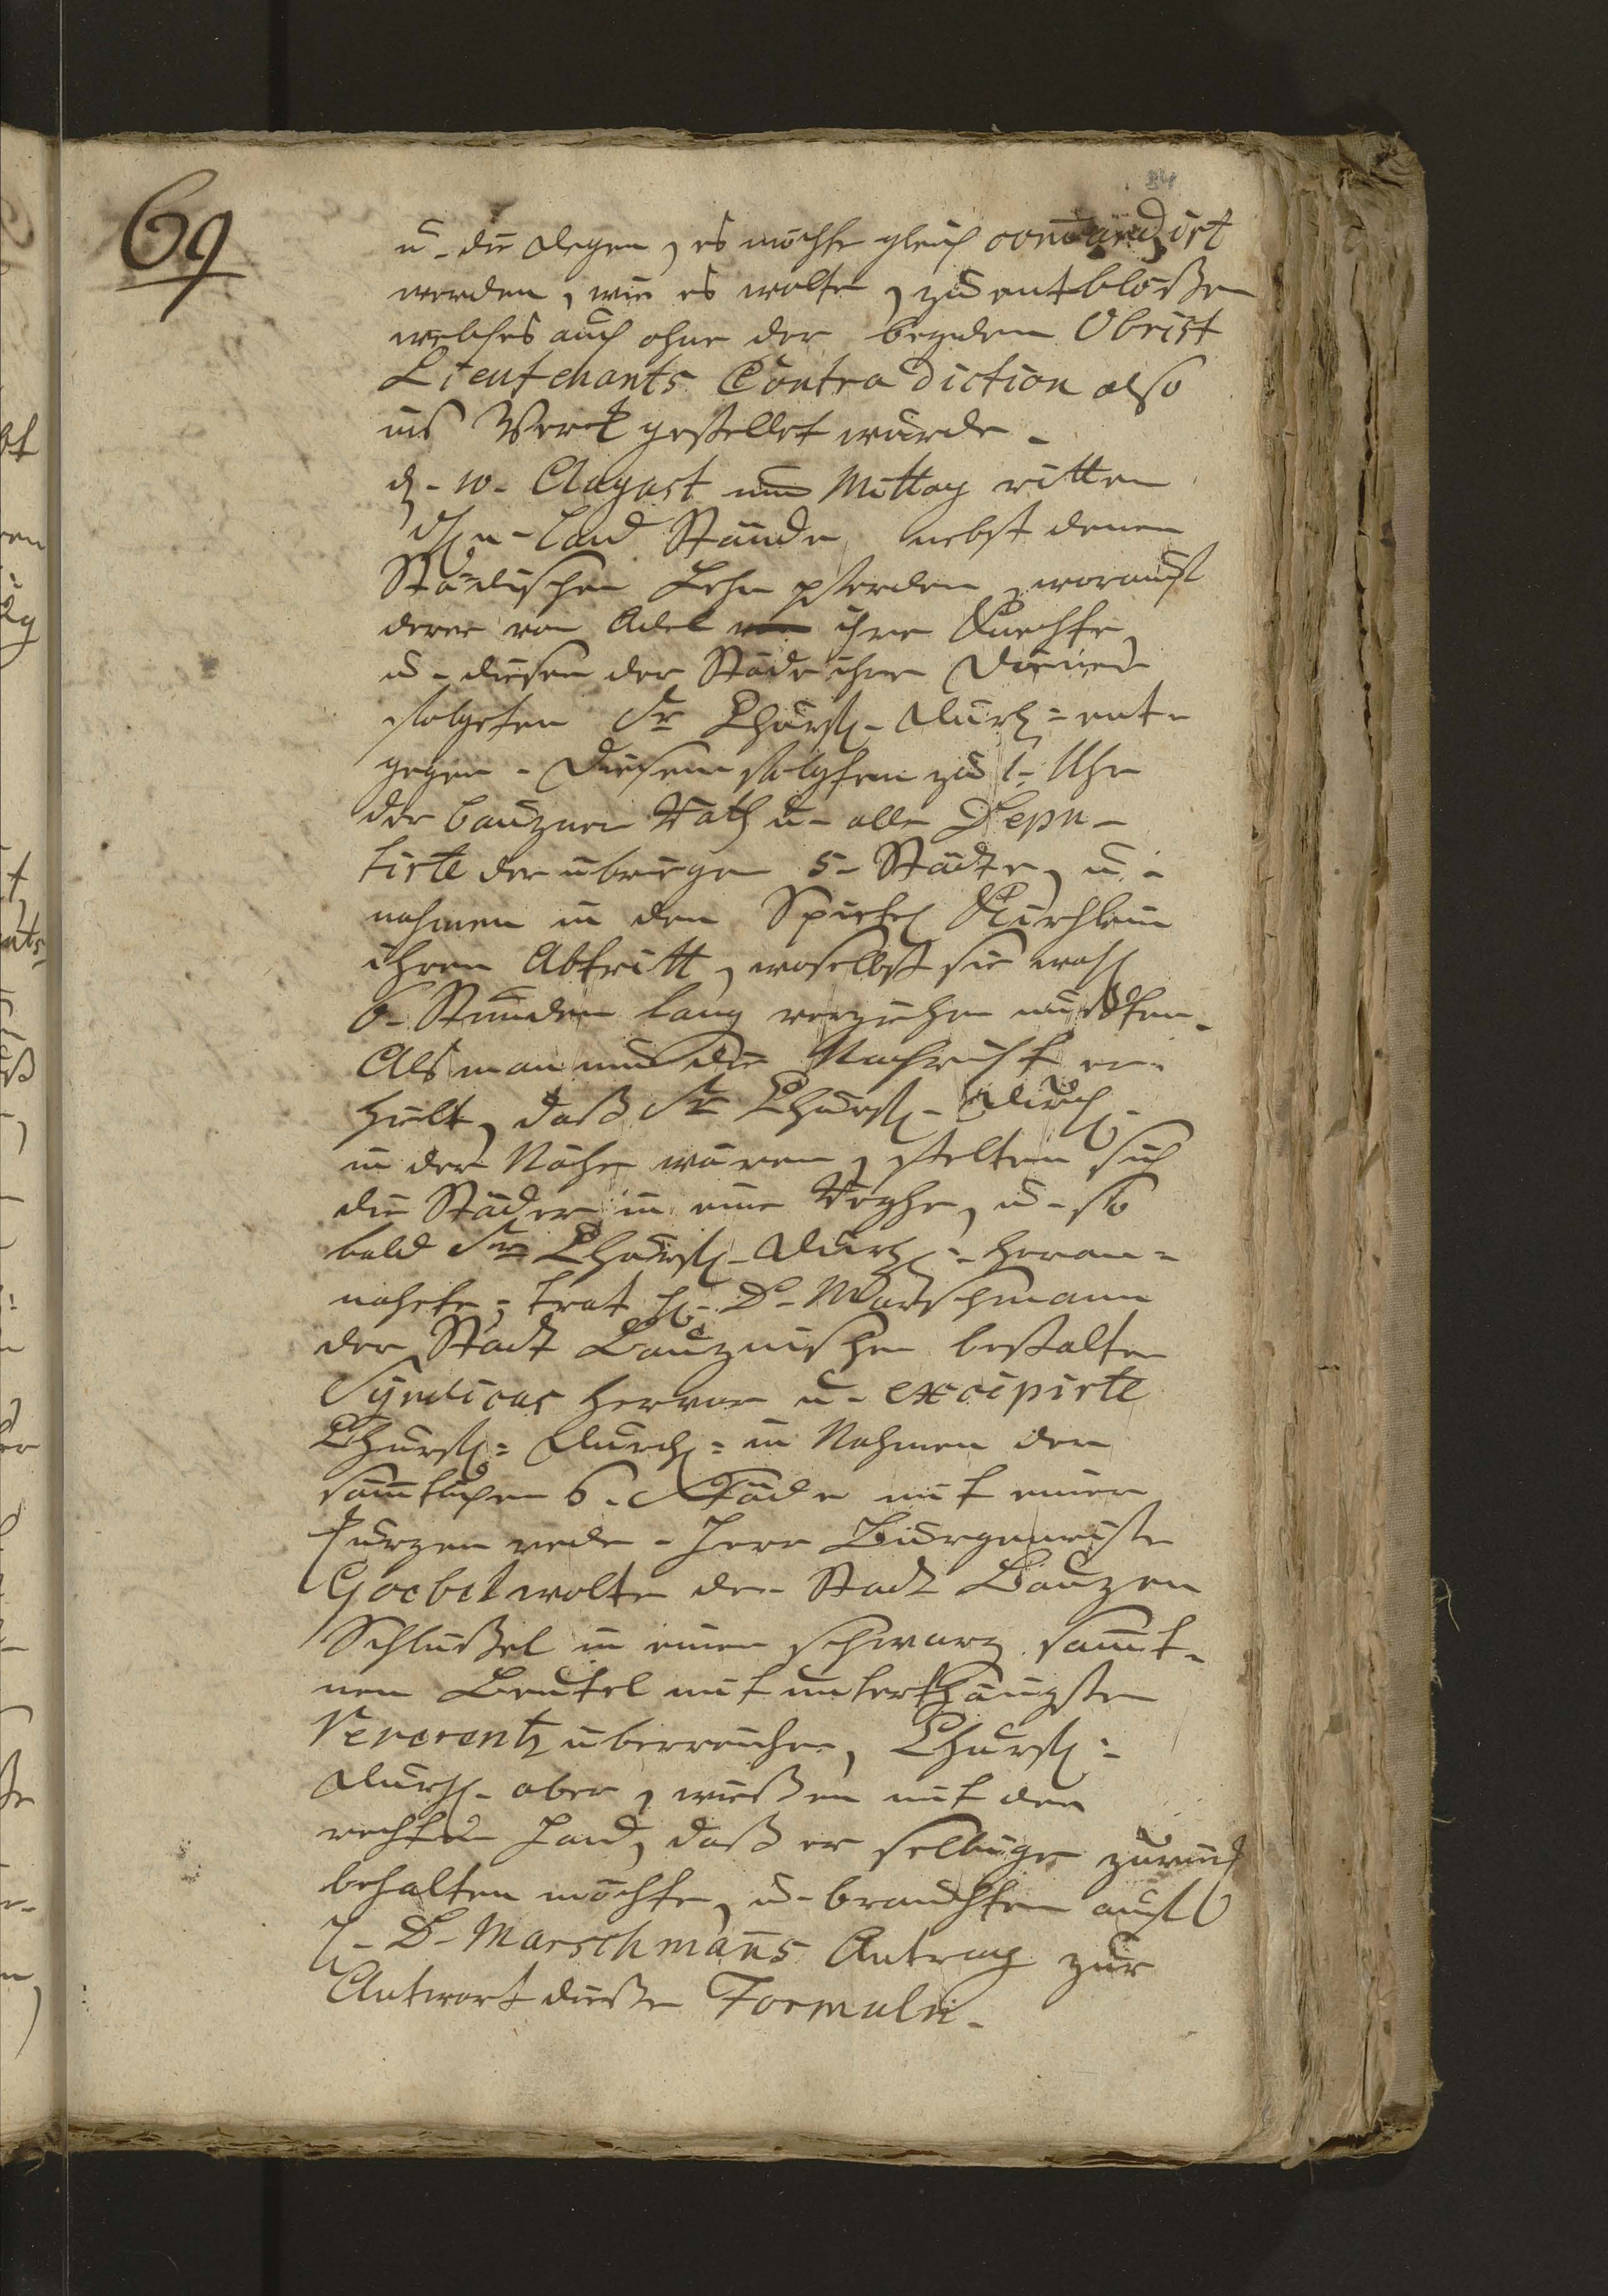 69
u. die Degen, es möchte gleich com̄andirt
werden, wie es wolte, zu entblößen
welches auch ohne der beyden Obrist
Lieutenants Contradiction also
ins Werck gestellet wurde.
d. 10. August um Mittag ritten
Land Stände nebst denen
Städischen Lehn pferden, worauf
derer von Adel ihre Knechte,
u. diesen der Städe ihre Diener
folgeten Sr Churfl. Durchl. ent-
gegen. Diesem folgten zu 1. Uhr
der bauzner Rath u. alle Depu-
tirte der ubrigen 5. Städte, u.
nahmen in dem Spittel Kirchlein
ihren Abtritt, woselbst sie wohl
6. Stunden lang verziehen musten.
Als man nun die Nachricht er-
hielt, daß Sr Churfl. Durchl.
in der Nähe wären, stelten sich
die Städer in eine Reyhe, u. so
bald Sr Churfl. Durchl. heran-
nahete, trat H. D. Marschmann
der Stadt Bauznischen bestalter
Syndicus hervor u. excipirte
Churfl. Durchl. in Nahmen der
sämtlichen 6. Städe mit einer
kurzen rede. Herr Burgemeister
Goebel wolte der Stadt Bauzen
Schlüßel in einen schwarz sam̄t-
nen Beutel mit unterthänigster
Reverentz uberreichen, Churfl.
Durchl. aber, wießen mit der
rechten Hand, daß er selbige zuruck
behalten möchte, u. brauchten auf
H. D. Marschmans Antrag zur
Antwort dieße Formuln.